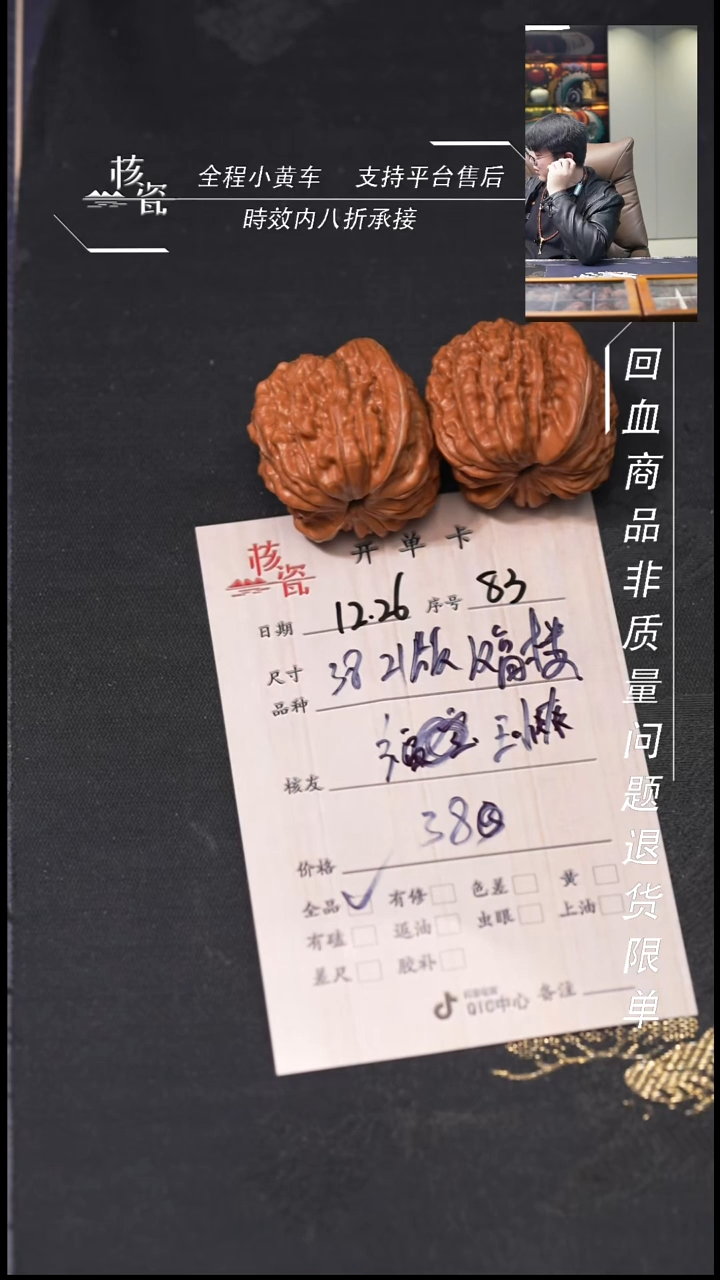 核瓷
全程小黄车 支持平台售后
時效内八折承接
回血商品非质量问题退货限单
核瓷
开单卡
日期 12.26 序号 83
尺寸
品种 38 21版
核友 王
价格 380
全品 ✓ 有修 色差 黄
有磕 返油 虫眼 上油
差尺 胶补
QIC中心 备注